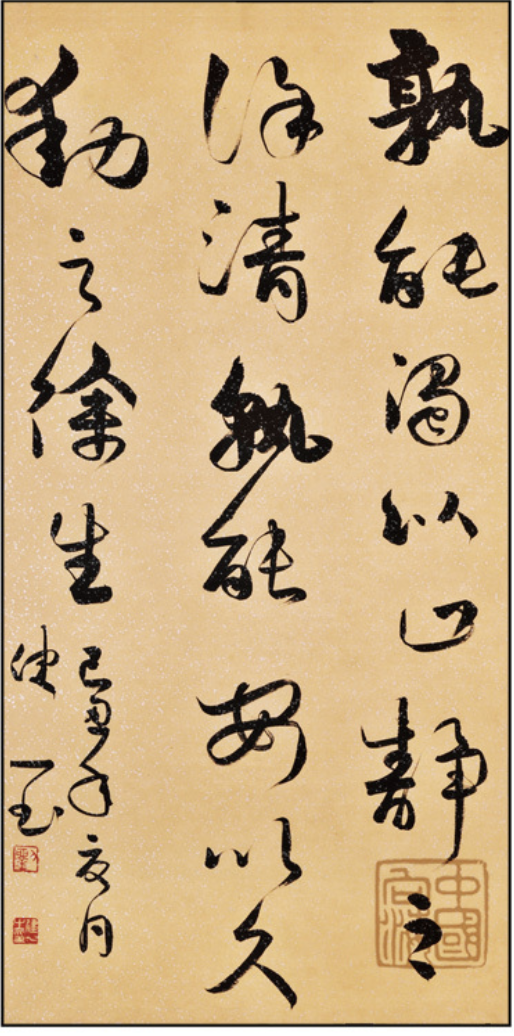 孰能濁以止靜之
徐清孰能安以久
動之徐生
己丑年夏月
中國